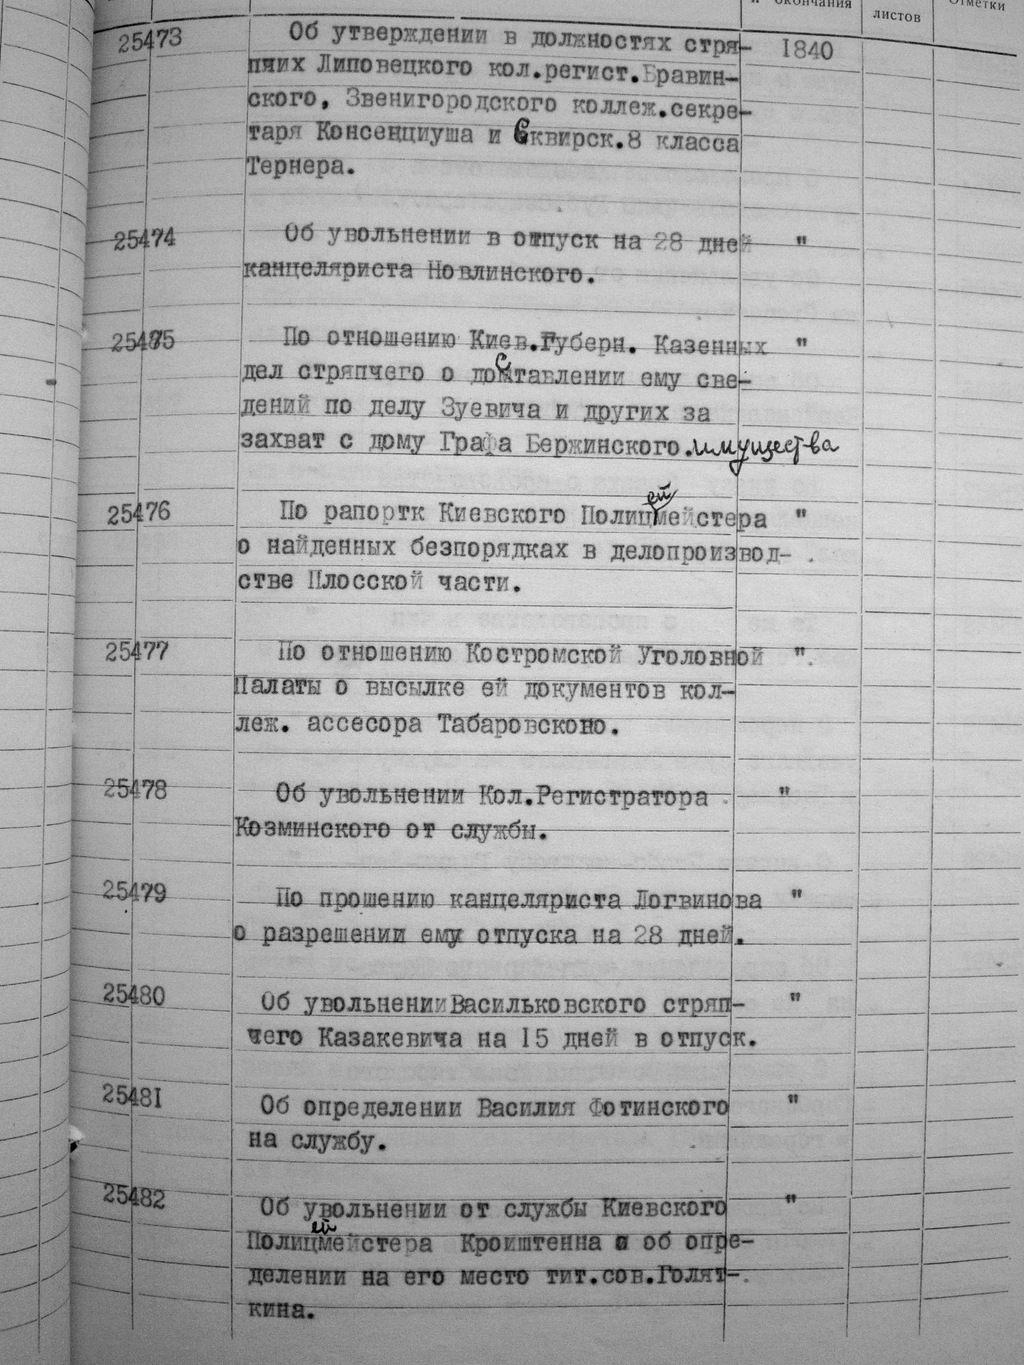 и окончания
листов
Отметки
25473 Об утверждении в должностях стря- 1840
пчих Липовецкого кол.регист.Бравин-
ского, Звенигородского коллеж.секре-
таря Консенциуша и Сквирск.8 класса
Тернера.
25474 Об увольнении в отпуск на 28 дней "
канцеляриста Новлинского.
25475 По отношению Киев.Губерн. Казенных "
дел стряпчего о доставлении ему све-
дений по делу Зуевича и других за
захват с дому Графа Бержинского.имущества
25476 По рапортк Киевского Полицеймейстера "
о найденных безпорядках в делопроизвод-
стве Плосской части.
25477 По отношению Костромской Уголовной "
Палаты о высылке ей документов кол-
леж. ассесора Табаровсконо.
25478 Об увольнении Кол.Регистратора "
Козминского от службы.
25479 По прошению канцеляриста Логвинова "
о разрешении ему отпуска на 28 дней.
25480 Об увольнении Васильковского стряп- "
чего Казакевича на 15 дней в отпуск.
25481 Об определении Василия Фотинского "
на службу.
25482 Об увольнении от службы Киевского "
Полицеймейстера Кроиштенна и об опре-
делении на его место тит.сов.Голят-
кина.